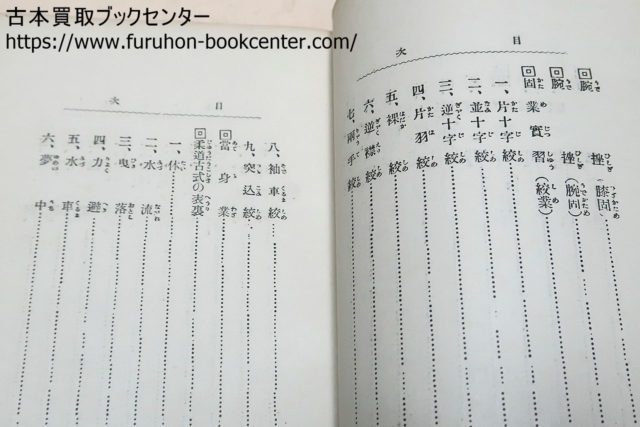 古本買取ブックセンター
https://www.furuhon-bookcenter.com/
目次
回腕挫(膝固)
回腕挫(腕固)
回固業實習(絞業)
一、片十字絞
二、並十字絞
三、逆十字絞
四、片羽絞
五、裸絞
六、逆襟絞
七、兩手絞
目次
八、袖車絞
九、突込絞
回當身業
回柔道古式の表裏
一、体
二、水流
三、曳落
四、力避
五、水車
六、夢中